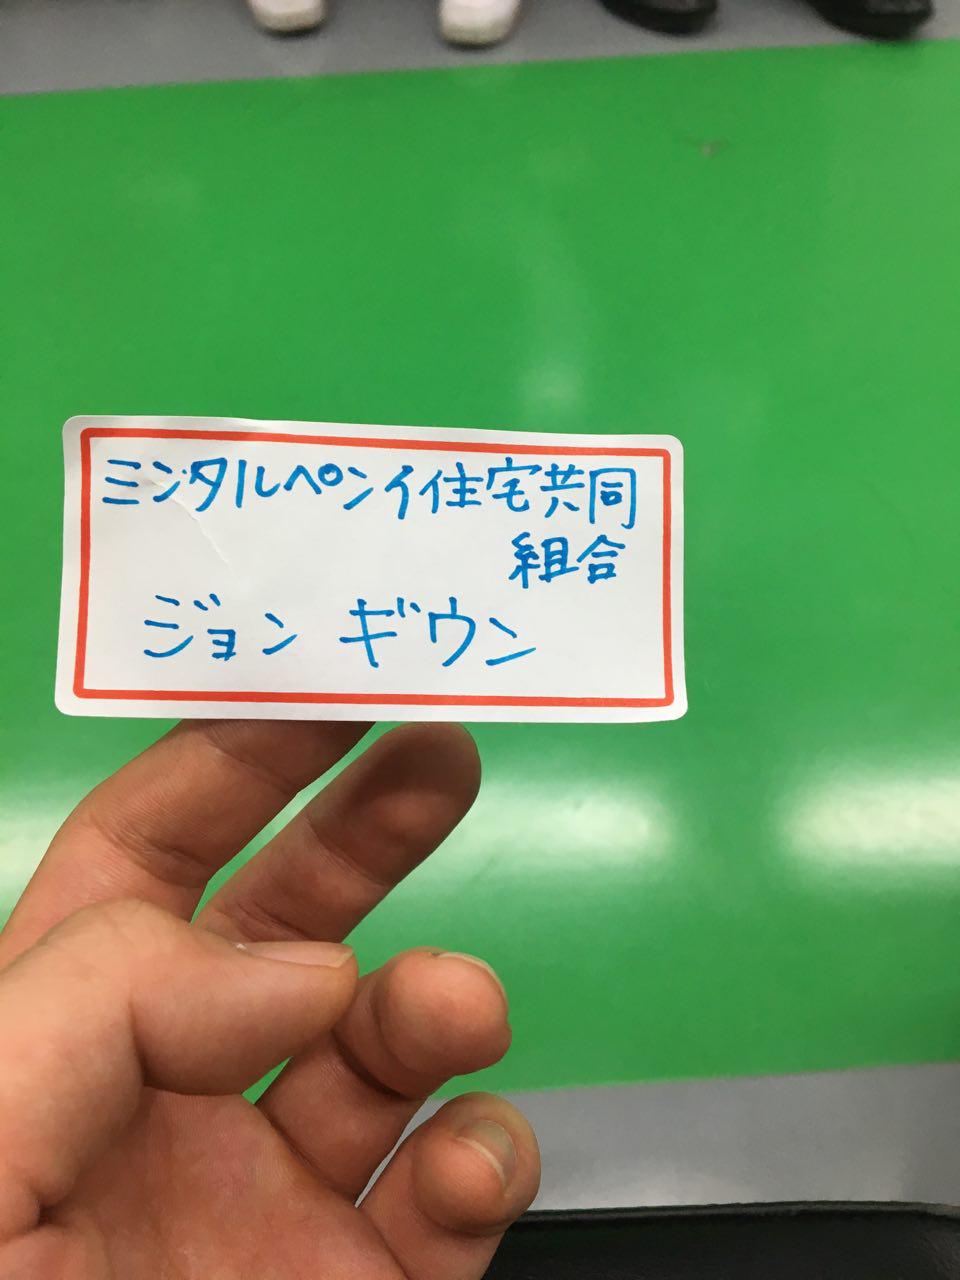 ミンダルペンイ住宅共同
組合
ジョン ギウン